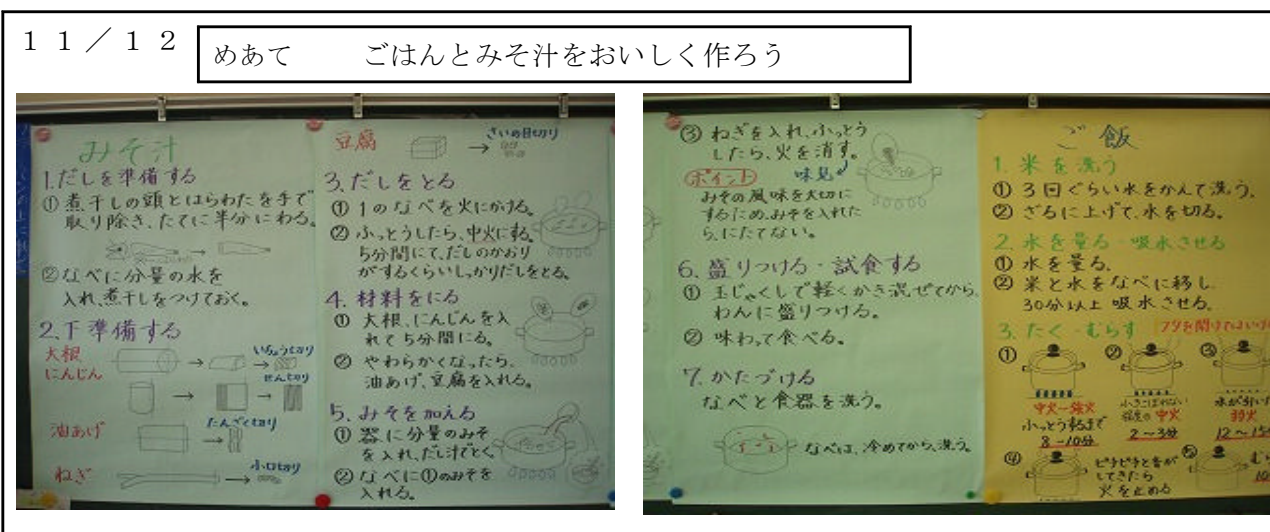 11/12
めあて　　ごはんとみそ汁をおいしく作ろう
みそ汁
1.だしを準備する
① 煮干しの頭とはらわたを手で
取り除き、たてに半分にわる。
②なべに分量の水を
入れ、煮干しをつけておく。
2.下準備する
大根
にんじん
いちょう切り
せん切り
油あげ
たんざく切り
ねぎ
小口切り
豆腐
さいの目切り
3.だしをとる
① 1のなべを火にかける。
② ふっとうしたら、中火にする。
5分間にて、だしのかおり
がするくらいしっかりだしをとる。
4.材料をにる
① 大根、にんじんを入
れて5分間にる。
② やわらかくなったら、
油あげ、豆腐を入れる。
5.みそを加える
① 器に分量のみそ
を入れ、だし汁でとく
② なべに①のみそを
入れる。
③ ねぎを入れ、ふっとう
したら、火を消す。
ポイント
味見
みその風味を大切に
するため、みそを入れた
ら、にたてない。
6.盛りつける・試食する
① 玉じゃくしで軽くかき混ぜてから、
わんに盛りつける。
② 味わって食べる。
7.かたづける
なべと食器を洗う。
なべは、冷めてから、洗う。
ご飯
1.米を洗う
① 3回ぐらい水をかえて洗う。
② ざるに上げて、水を切る。
2.水を量る・吸水させる
① 水を量る。
② 米と水をなべに移し、
30分以上吸水させる。
3.たく・むらす
フタを開けてはいけ
①
中火〜強火
ふっとうするまで
8〜10分
②
ふきこぼれない
程度の中火
2〜3分
③
水が引いた
弱火
12〜15
④
ピチピチと音が
してきたら
火を止める
⑤
む
10